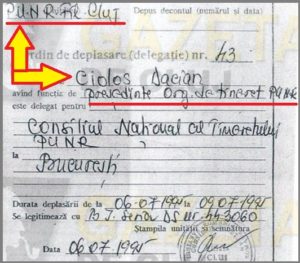 P.U.N.R. Fil. Cluj
Depus decontul (numărul și data)
Ordin de deplasare (delegație) nr. 43
Cioloș Dacian
avînd funcția de președinte Org. de tineret PUNR
este delegat pentru
Consiliul Național al Tineretului
PUNR
la
București
Durata deplasării de la 06.07.1995 la 09.07.1995
Se legitimează cu B.I. seria DS nr. 443060
Ștampila unității și semnătura
Data 06.07.1995
CLUJ